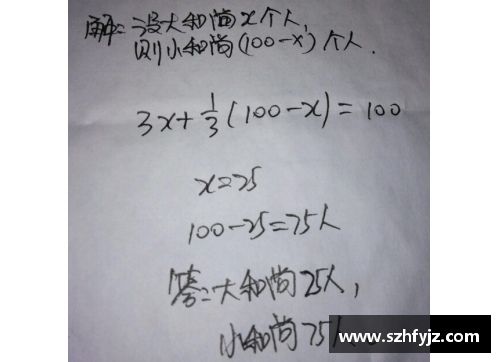 解：设大和尚x个人，
则小和尚(100-x)个人.
3x+1/3(100-x)=100
x=25
100-25=75人
答：大和尚25人，
小和尚75人
www.szhfyjz.com